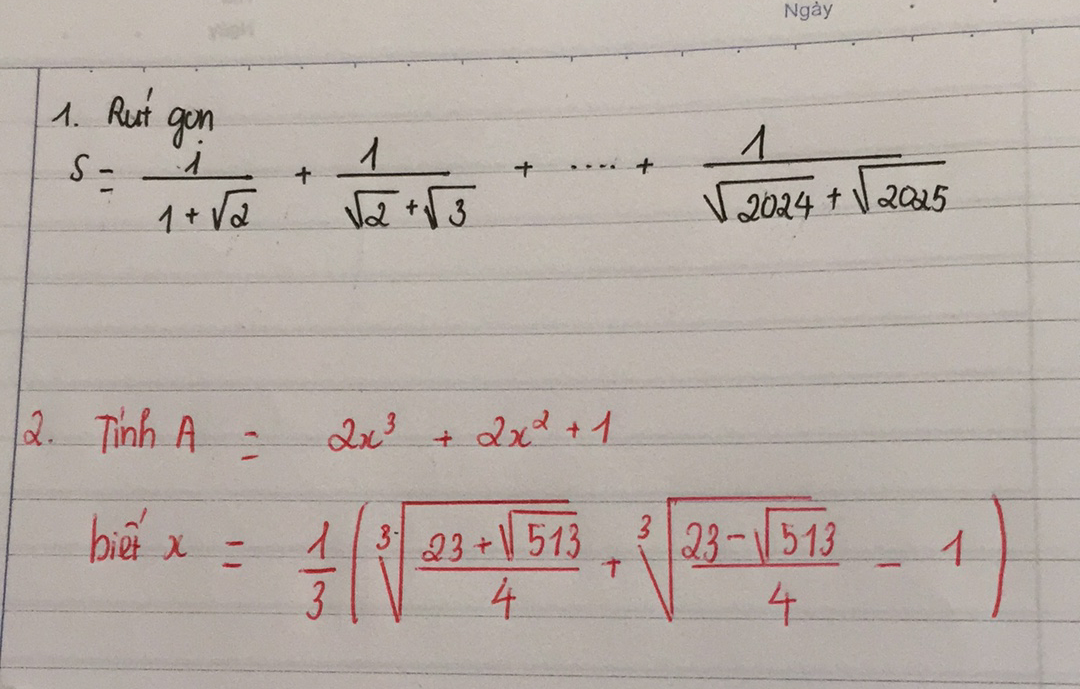 Ngày
1. Rút gọn
S = 1/(1+√2) + 1/(√2+√3) + .... + 1/(√2024+√2025)
2. Tính A = 2x³ + 2x² + 1
biết x = 1/3 (∛((23+√513)/4) + ∛((23-√513)/4) - 1)